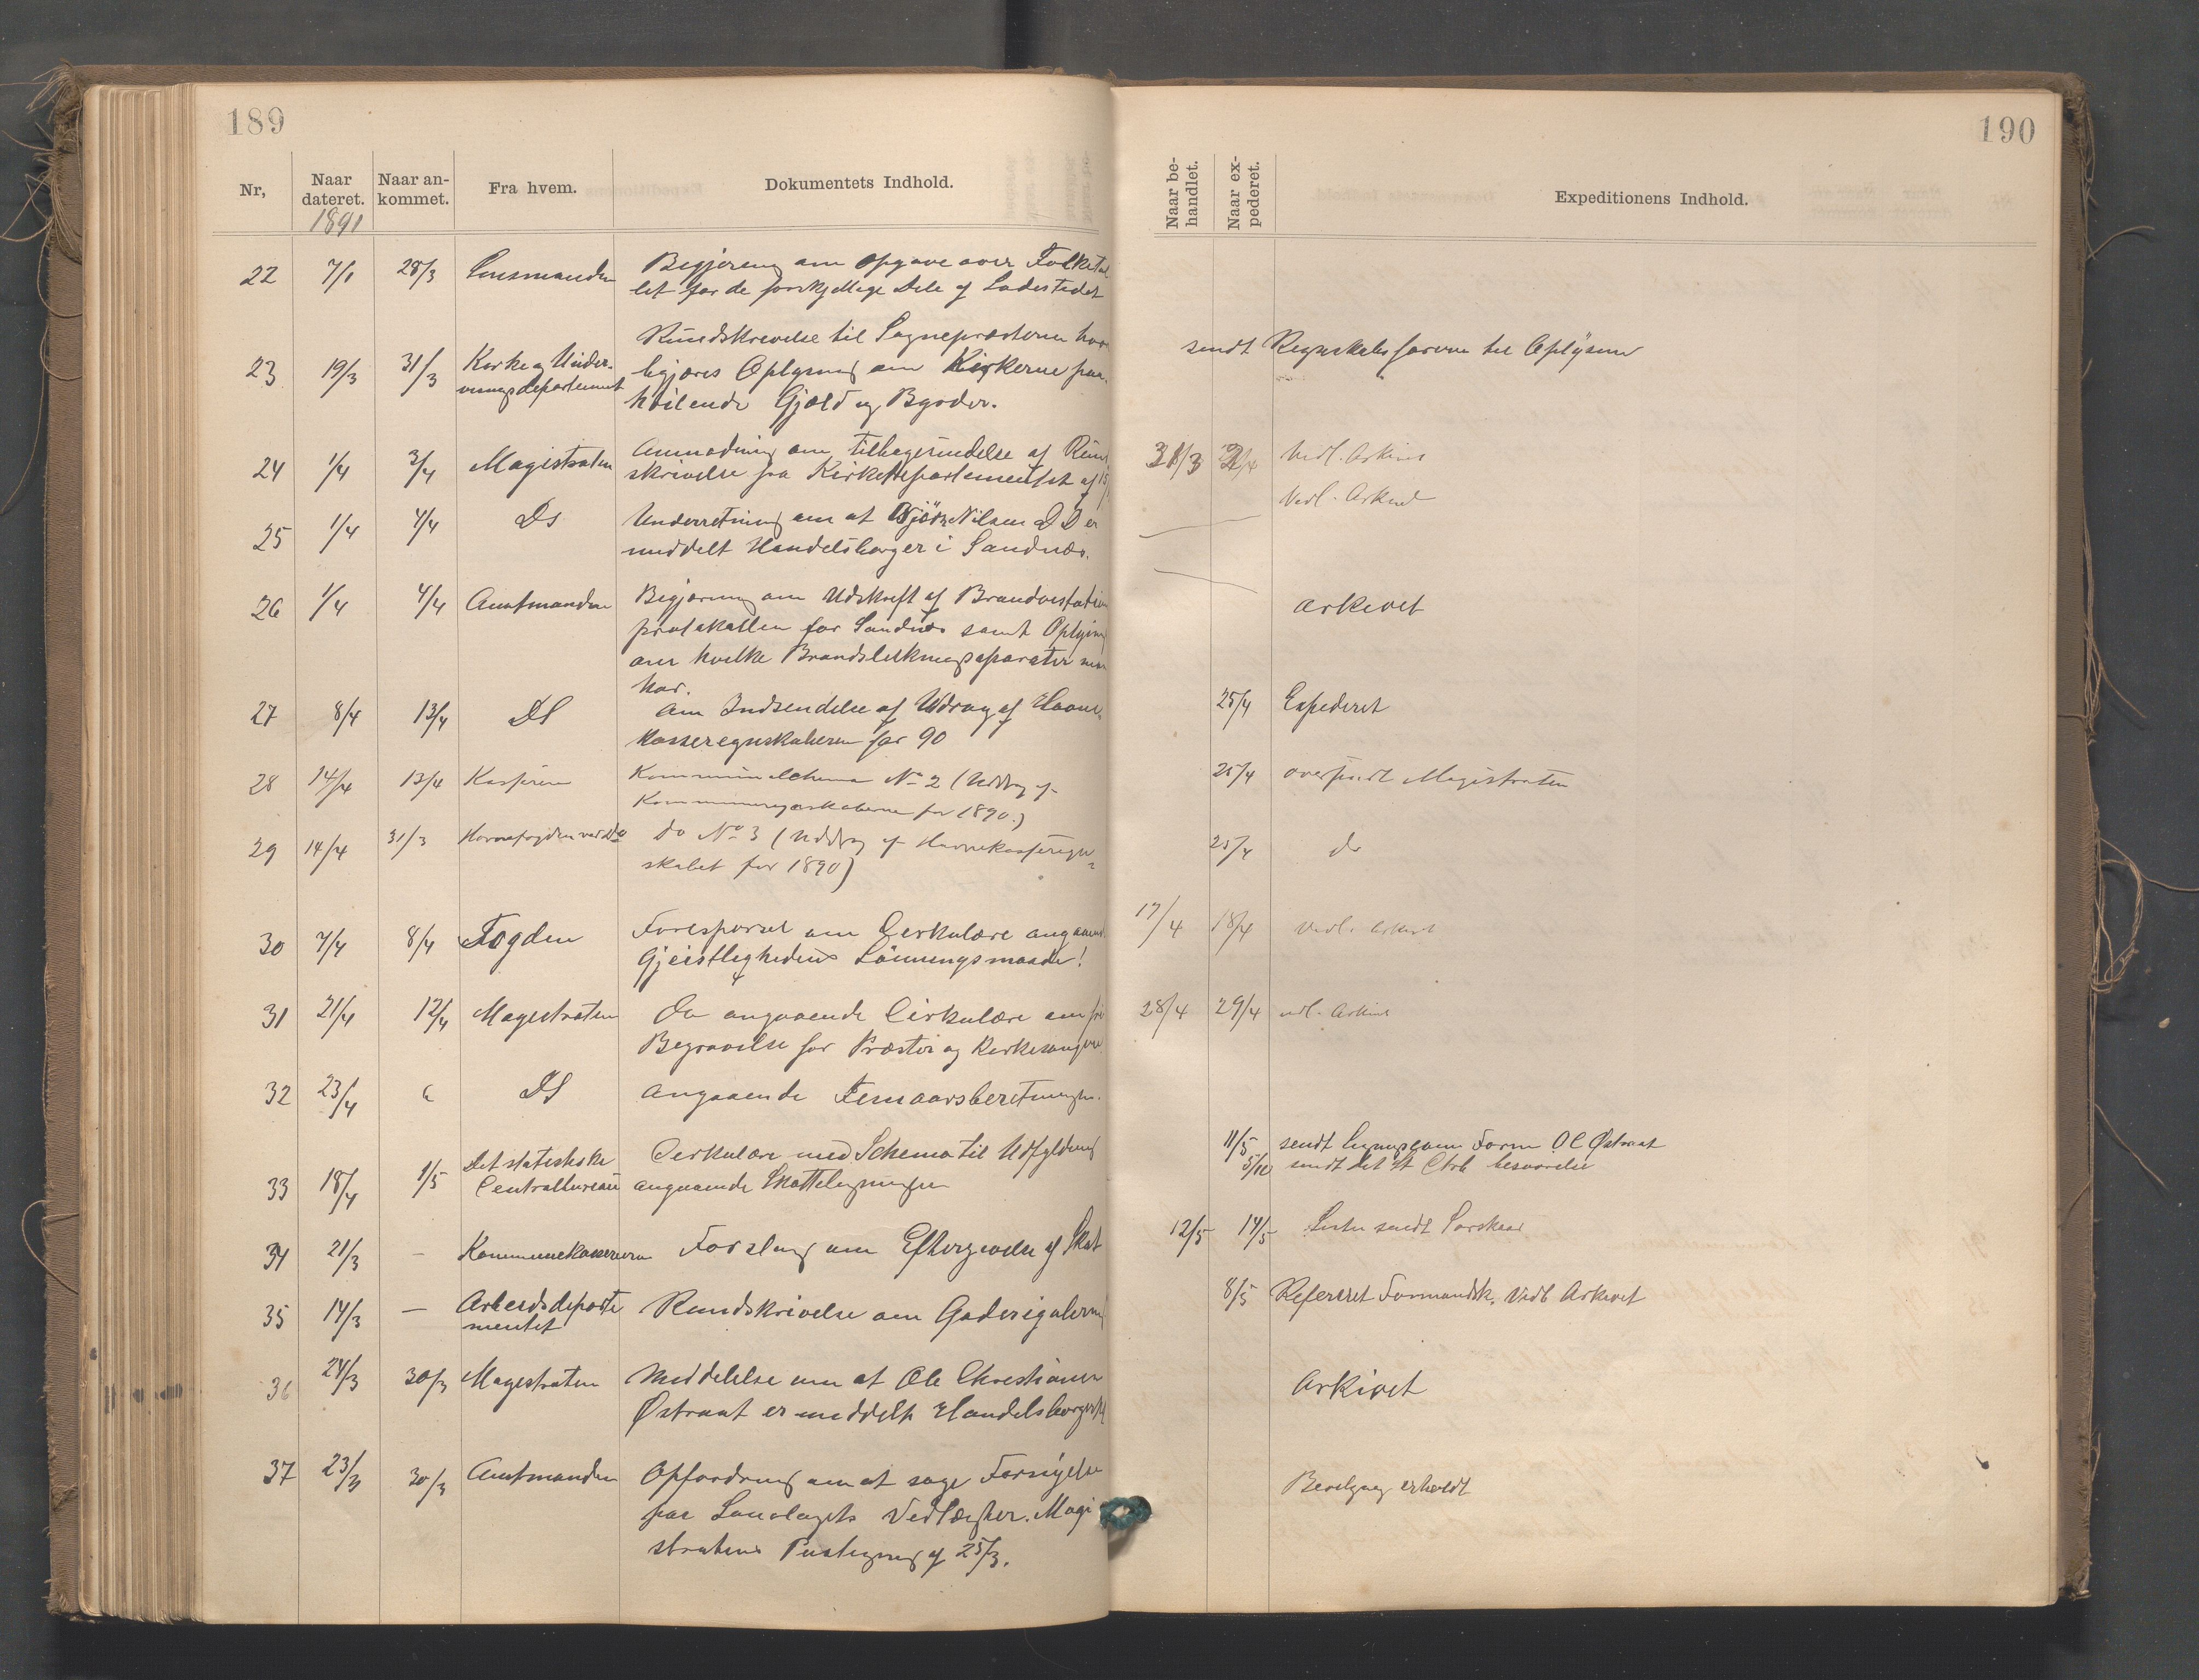 189
Nr,
Naar dateret.
Naar ankommet.
Fra hvem.
Dokumentets Indhold.
1891
22 7/1 28/3 Lensmanden Begjæring om Opgave over Folketal
let for de forskjellige Dele af Ladestedet
Rundskrivelse til Sognepræsterne hvor
23 19/3 31/3 Kirke og Under- begjæres Oplysning om Kirkerne paa-
visningsdepartement hvilende Gjæld og Byrder.
24 1/4 3/4 Magistraten Anmodning om tilbagesendelse af Rund
skrivelse fra Kirkedepartementet af
25 1/4 4/4 Ds Underretning om at Björn Nilsen er
meddelt Handelsborger i Sandnæs.
26 1/4 4/4 Amtmanden Begjæring om Udskrift af
protokollen for Sandnæs samt Oplysning
om hvilke Brandslukningsaparater man
har.
27 8/4 13/4 DS Om Indsendelse af Udrag af Havne-
kasseregnskaberne for 90
28 14/4 13/4 Kasseren Kommuneschema No 2 (Uddrag af
Kommuneregnskaberne for 1890.)
29 14/4 31/3 Havnefogden Do No 3 (Uddrag af Havnekasseregn=
skabet for 1890)
30 7/4 8/4 Fogden Forespørsel om Cerkulære angaaend
Gjeistlighedens Lönningsmaade!
31 21/4 12/4 Magestraten Do angaaende Cirkulære om fri
Begravelse for Præster og Kirkesangere
32 23/4 " DS Angaaende Femaarsberetningen.
33 18/4 1/5 Det statistiske Cerkulære med Schema til Udfyldning
Centralbureau angaaende Skatteligningen
34 21/3 – Kommunekassereren Forslag om Eftergivelse af Skat
35 14/3 – Arbeidsdeparte Rundskrivelse om Gaderegulering
mentet
36 24/3 30/3 Magestraten Meddelelse om at Ole Christianen
Østraat er meddelt Handelsborgerskb
37 23/3 30/3 Amtmanden Opfordring om at søge Fornyelse
paa Lavlagets Vedtægter. Magi
stratens Paategning af 25/3.
190
Naar behandlet.
Naar expederet.
Expeditionens Indhold.
sendt Regnskabsføreren til Oplysning
31/3 2/4 Vedl. Arkivet
Vedl. Arkivet
Arkivet
25/4 Expederet
25/4 oversendt Magistraten
25/4 do
17/4 18/4 Vedl. Arkivet
28/4 29/4 vedl. Arkivet
11/5 sendt Form O C Østraat
5/10 sendt det st Ctrb besvarelse
12/5 14/5 Listen sendt
8/5 Refereret Formandsk. Vedl Arkivet
Arkivet
Bevilgning erholdt